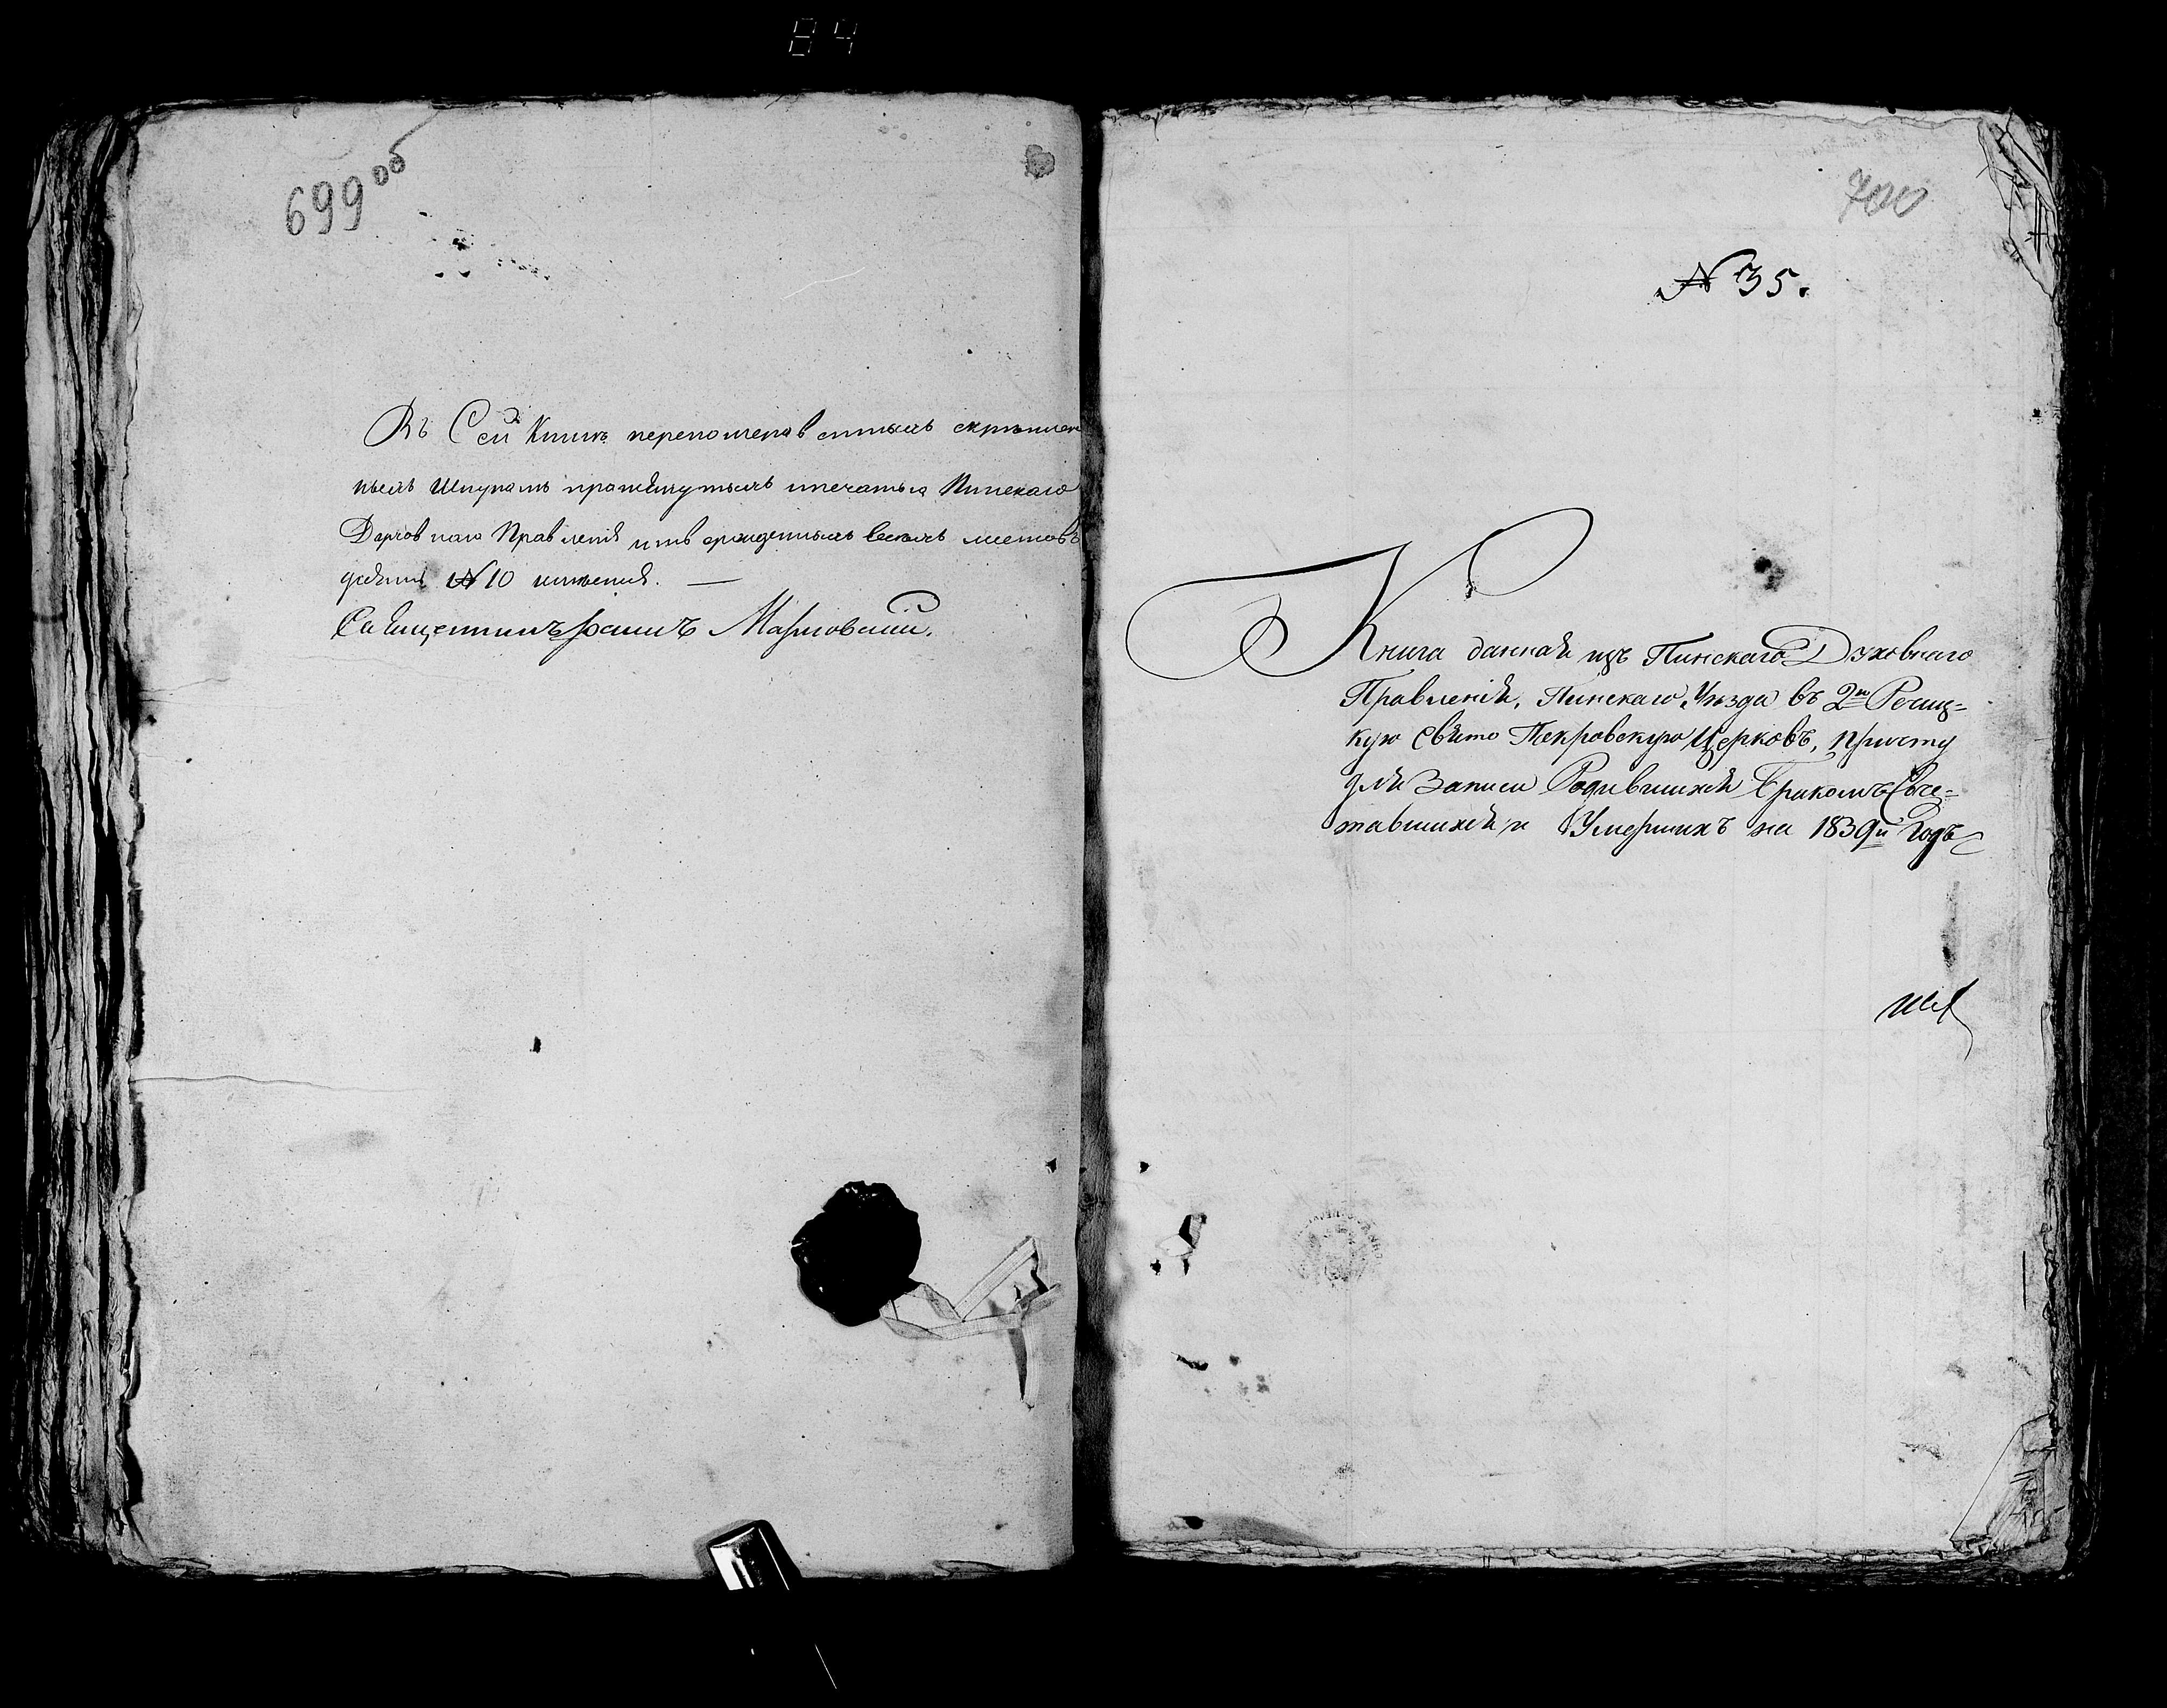 84
699 об
Въ Сей Книгѣ перепомерованныхъ скрѣплен
ныхъ Шнуромъ протянутыхъ и печатью Пинскаго
Духовнаго Правленія утвержденныхъ всехъ листовъ
десять № 10 имѣется. —
Священникъ Іоаннъ Марковскій.
700
№ 35.
Книга данная изъ Пинскаго Духовнаго
Правленія, Пинскаго Уѣзда въ 2ю Речиц=
кую Свято Покровскую Церковъ, Причту
для Записи Родившихся Бракомъ Соче=
тавшихся и Умершихъ на 1839й Годъ